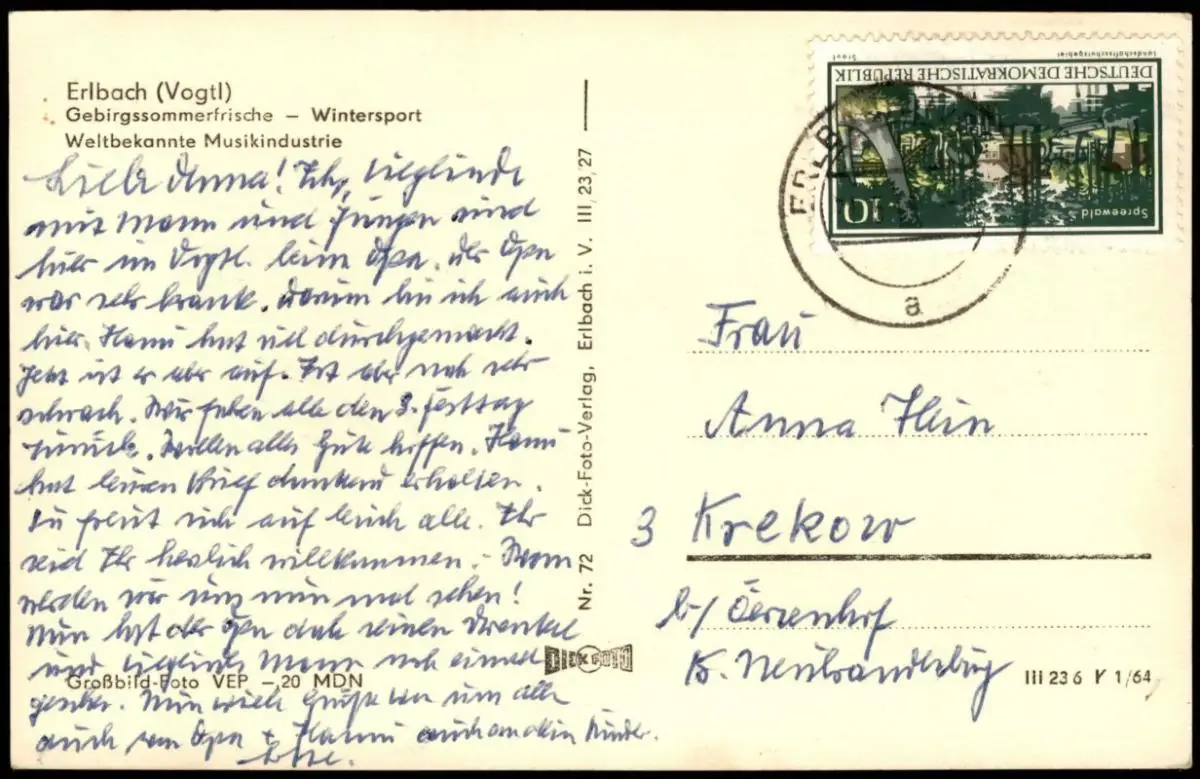 Erlbach (Vogtl)
Gebirgssommerfrische – Wintersport
Weltbekannte Musikindustrie
Liebe Anna! Ich, Sieglinde
mit Mann und Jungen sind
hier im Vogtl. beim Opa. Der Opa
war sehr krank. Darum bin ich auch
hier. Hanni hat viel durchgemacht.
Jetzt ist er aber auf. Ist aber noch sehr
schwach. Wir fahren alle den 3. Festtag
zurück. Wollen alles Gute hoffen. Hanni
hat Brief dankend erhalten.
freut sich auf Euch alle. Ihr
seid Ihr herzlich willkommen. Wann
werden wir uns nun mal sehen!
Nun hat der Opa doch seinen
und Sieglindes Mann noch einmal
gesehen. Nun viele Grüße von uns allen
auch von Opa + Hanni auch an dein Kinder.
Großbild-Foto VEP –.20 MDN
Nr. 72 Dick-Foto-Verlag, Erlbach i. V. III, 23, 27
DICK FOTO
DEUTSCHE DEMOKRATISCHE REPUBLIK
Landschaftsschutzgebiet
Spreewald
10
ERLB
a
Frau
Anna Hein
3 Krekow
b/ Oerzenhof
K. Neubrandenburg
III 23 6 V 1/64